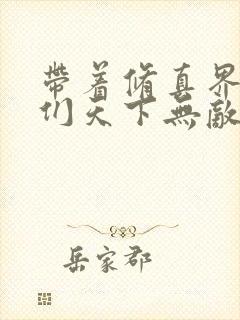 帶着脩真界
们天下無敵
岳家郡